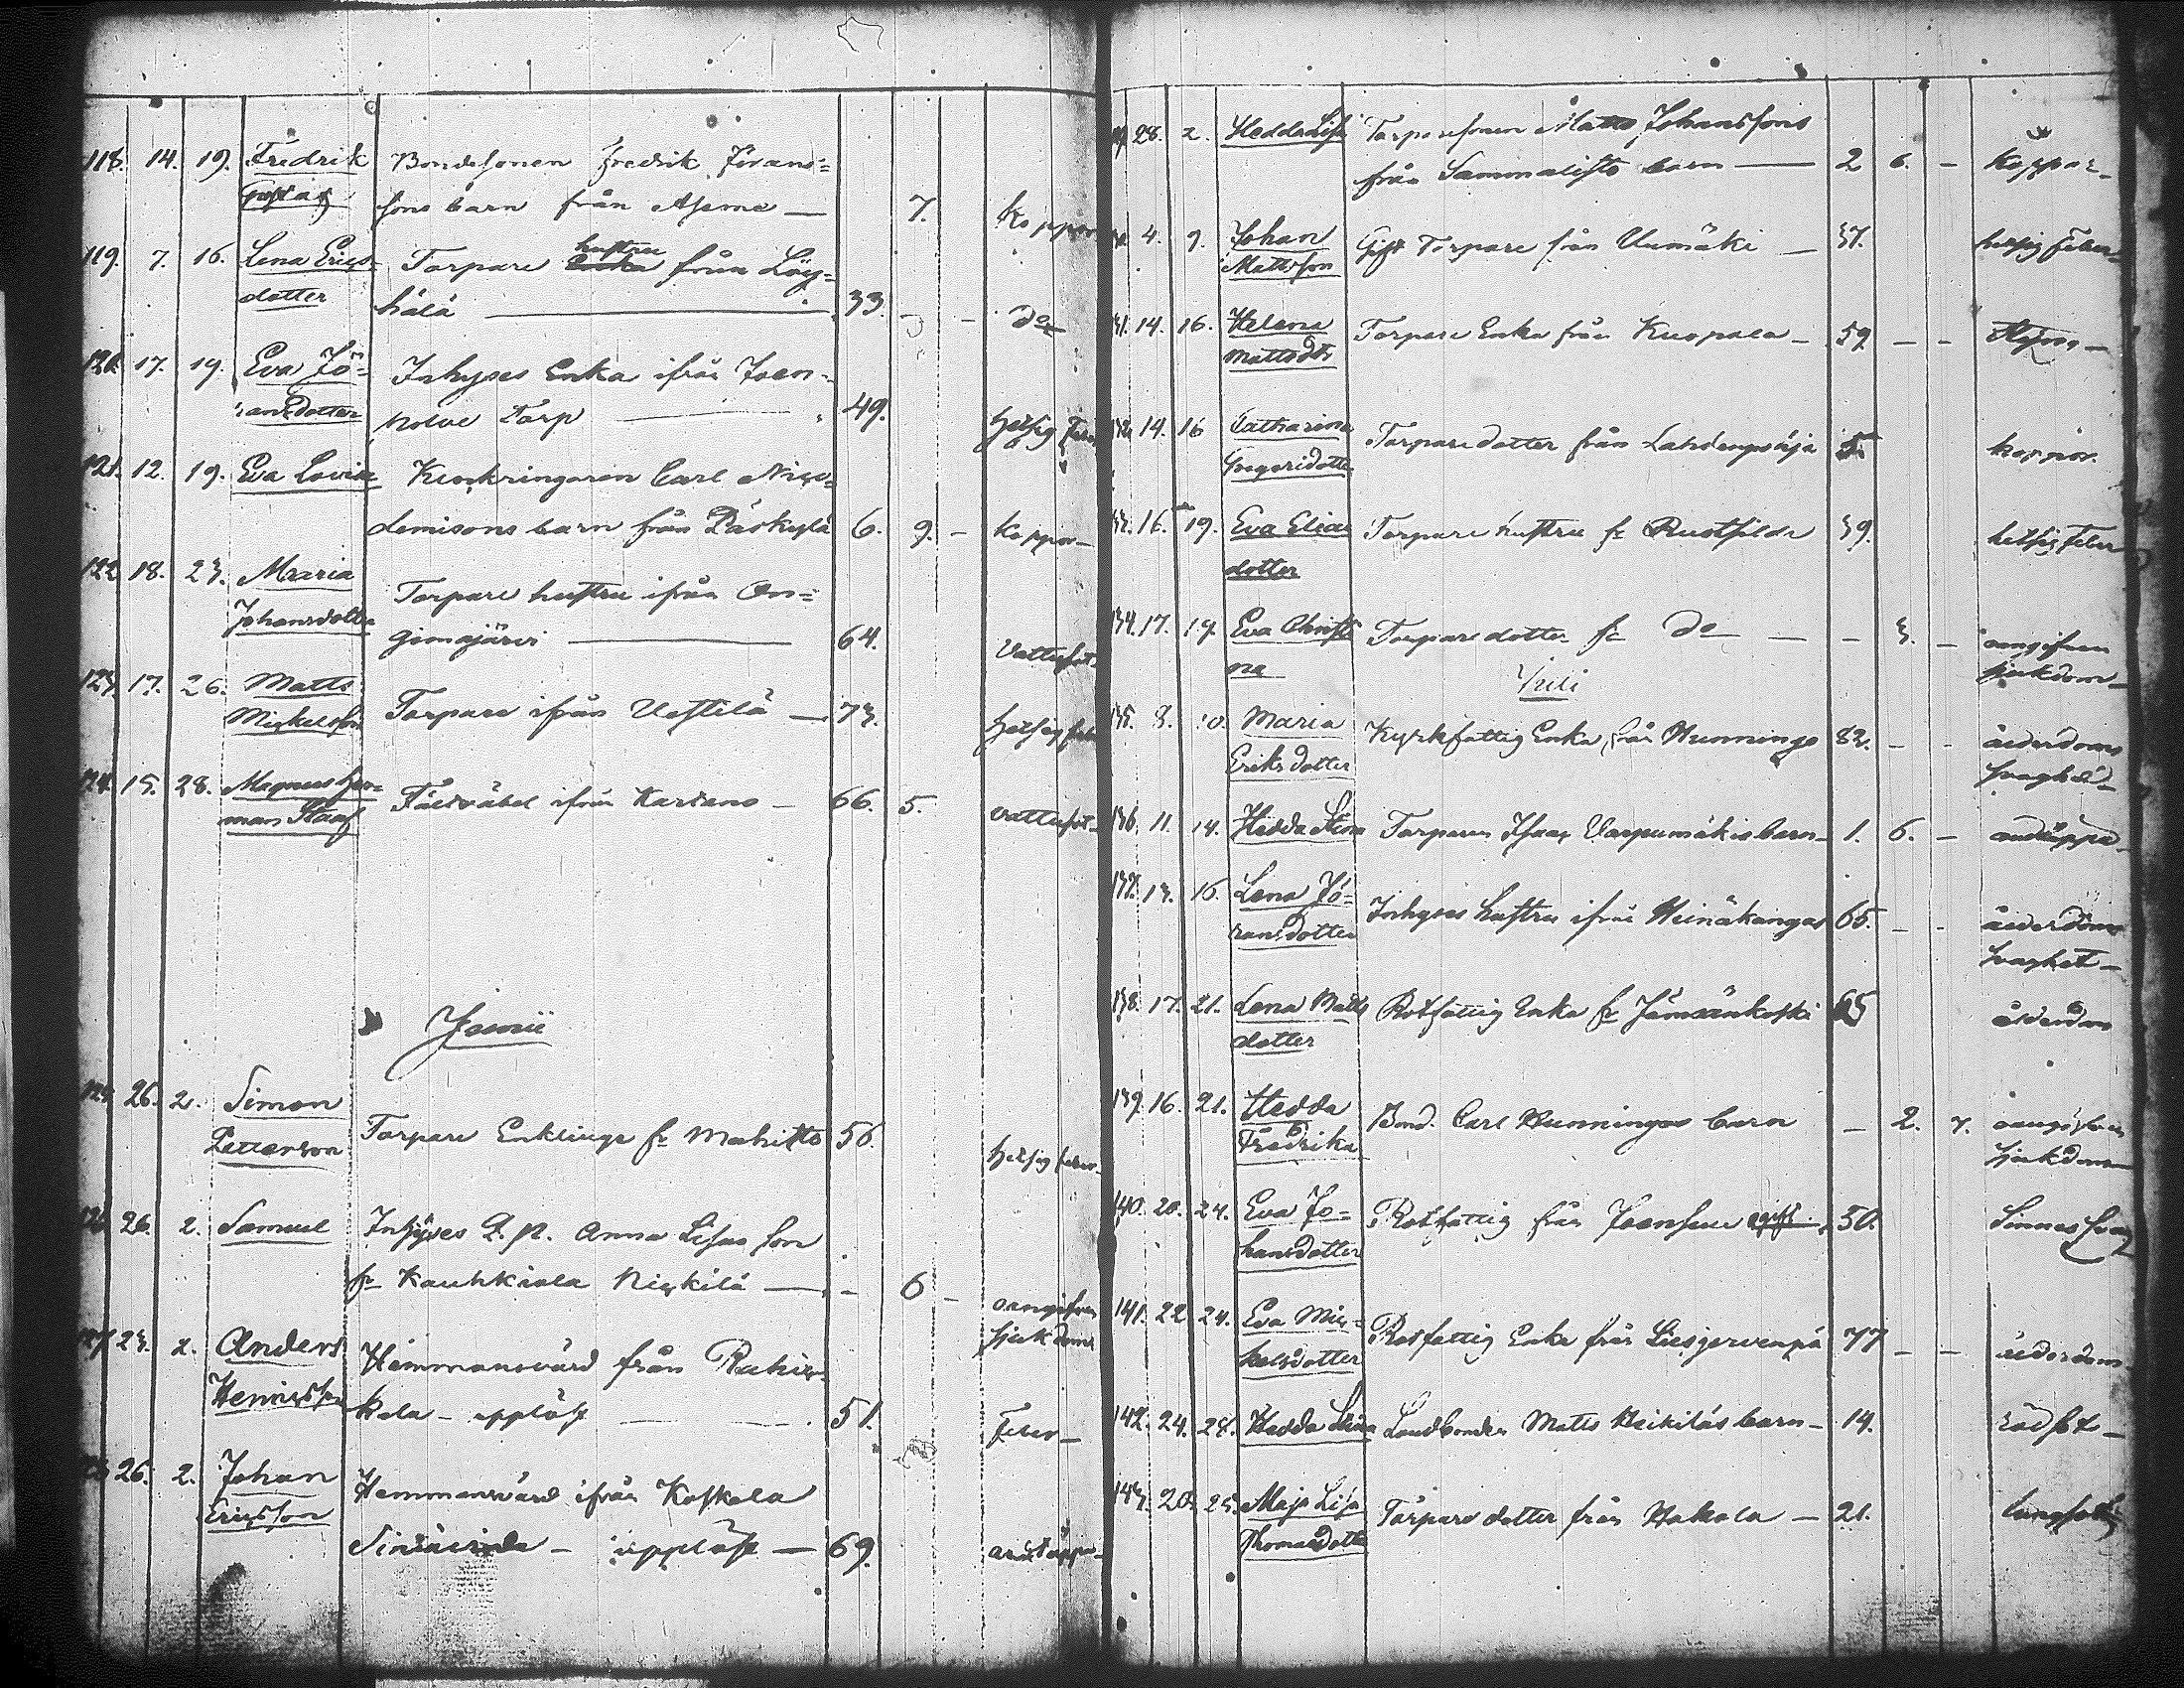 118. 14. 19. Fredrik Bondesonen Fredrik Jörans=
Gustaf sons barn från Aseme — 7. Koppor
119. 7. 16. Lena Erics= Torpare hustru från Löy=
dotter hälä — 33. — — Do
120. 17. 19. Eva Jö= Inhyses Enka ifrån Joen=
ransdotter Torp — 49. Hetsig Feber
121. 12. 19. Eva Lovisa Carl
barn från 6. 9. — Koppor
122. 18. 23. Maria Torpare hustru ifrån On=
Johansdotter gemajärvi — 64. Vattusot
123. 17. 26. Matts Torpare ifrån Uostilä — 73.
Mickelsson Hetsig feber
124. 15. 28. Magnus Her=
man Staaf Fältväbel ifrån — 66. 5. vattusot
Junii
125. 26. 2. Simon
Petterson Torpare Enklinge fr 56. Hetsig feber
126. 26. 2. Samuel Inhyses Q. p. Anna Lisas son
fr Kauhkiala — — 6 — oangifven
sjukdom
127. 23. 2. Anders Hemmansvärd från
Henricsson kala — uppläst — 51. Feber —
128. 26. 2. Johan Hemmansvärd ifrån Koskela
Ericsson — uppläst — 69. andtäppa
28. 2. Hedda Lisa Torparesonen Matts Johanssons
från barn — 2 6. — Koppor
4. 9. Johan Gift Torpare från Uumäki — 37. hetsig feber
Mattsson
131. 14. 16. Helena Torpare Enka från Kuopala — 59 — —
Mattsdtr
132. 14. 16 Catharina Torpare dotter från koppor.
Gregoridotter
133. 16. 19. Eva Elias Torpare hustru fr 39. hetsig feber
dotter
134. 17. 19. Eva Christi Torpare dotter fr Do — — 3. — oangifven
na sjukdom —
Juli
135. 8. 10. Maria Kyrkfattig Enka från Hunninge 82. — — ålderdoms
Eriksdotter svaghet —
136. 11. 14. Hedda Stina Torparen Isaac Varpumäkis barn — 1. 6. — andtäppa —
137. 13. 16. Lena Jö= Inhyses hustru ifrån Heinäkangas 65. — — ålderdoms
ransdotter svaghet —
138. 17. 21. Lena Matts Rotfattig Enka fr Jämsänkoski 65 ålderdom
dotter
139. 16. 21. Hedda Bond. Carl Hunningas barn — 2. 7. oangifven
Fredrika sjukdom
140. 20. 24. Eva Jo= Rotfattig från Joensuu 50. Sinnes svag
hansdotter
141. 22. 24. Eva Mic= Rotfattig Enka från 77 — — ålderdom
kelsdotter
142. 24. 28. Hedda Stina Landbonden Matts Heikiläs barn — 14. rödsot —
143. 20. 25. Maja Lisa Torpare dotter från Hakala — 21. lungsot
Thomasdotter